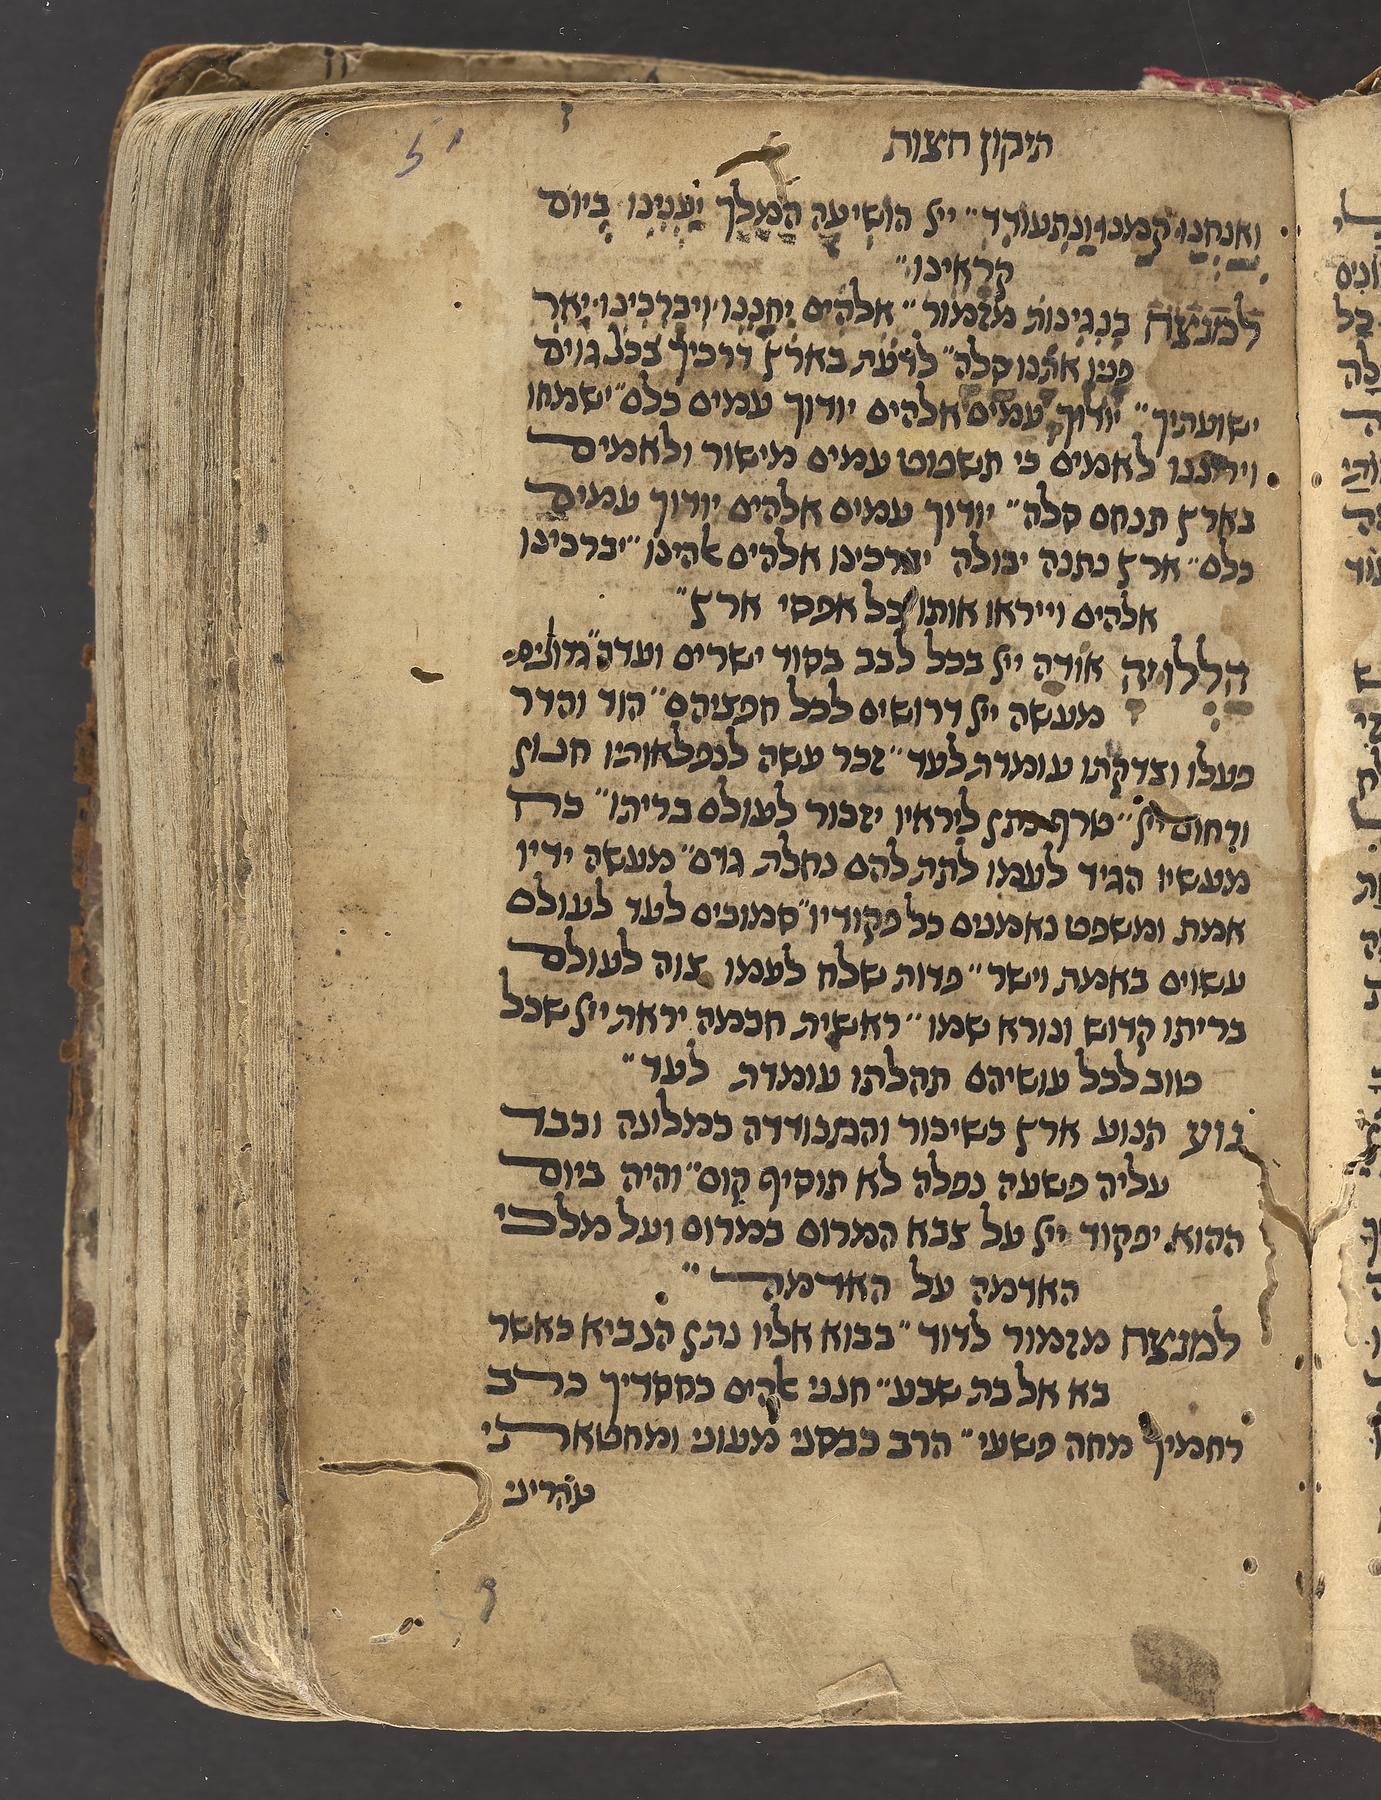 תיקון חצות
ואנחנו קמנו ונתעודד״ ייי הושיעה המלך יעננו ביום
קראינו״
למנצח בנגינות מזמור״ אלהים יחננו ויברכינו יאר
פניו אתנו סלה״ לדעת בארץ דרכיך בכל גוים
ישועתיך״ יודוך עמים אלהים יודוך עמים כלם״ ישמחו
וירננו לאמים כי תשפוט עמים מישור ולאמים
בארץ תנחם סלה״ יודוך עמים אלהים יודוך עמים
כלם״ ארץ נתנה יבולה יברכינו אלהים אהינו״ יברכינו
אלהים וייראו אותו כל אפסי ארץ״
הללויה אודה ייי בכל לבב בסוד ישרים ועדה״ גדולים
מעשה ייי דרושים לכל חפציהם״ הוד והדר
פעלו וצדקתו עומדת לעד״ זכר עשה לנפלאותיו חנון
ורחום ייי״ טרף נתן ליראיו יזכור לעולם בריתו״ כח
מעשיו הגיד לעמו לתת להם נחלת גוים״ מעשה ידיו
אמת ומשפט נאמנים כל פקודיו״ סמוכים לעד לעולם
עשוים באמת וישר״ פדות שלח לעמו צוה לעולם
בריתו קדוש ונורא שמו״ ראשית חכמה יראת ייי שכל
טוב לכל עושיהם תהלתו עומדת לעד״
נוע תנוע ארץ כשיכור והתנודדה כמלונה וכבד
עליה פשעה נפלה לא תוסיף קום״ והיה ביום
ההוא יפקוד ייי על צבא המרום במרום ועל מלכי
האדמה על האדמה״
למנצח מזמור לדוד״ בבוא אליו נתן הנביא כאשר
בא אל בת שבע״ חנני אהים כחסדיך כרב
רחמיך מחה פשעי״ הרב כבסני מעוני ומחטאתי
טהריני